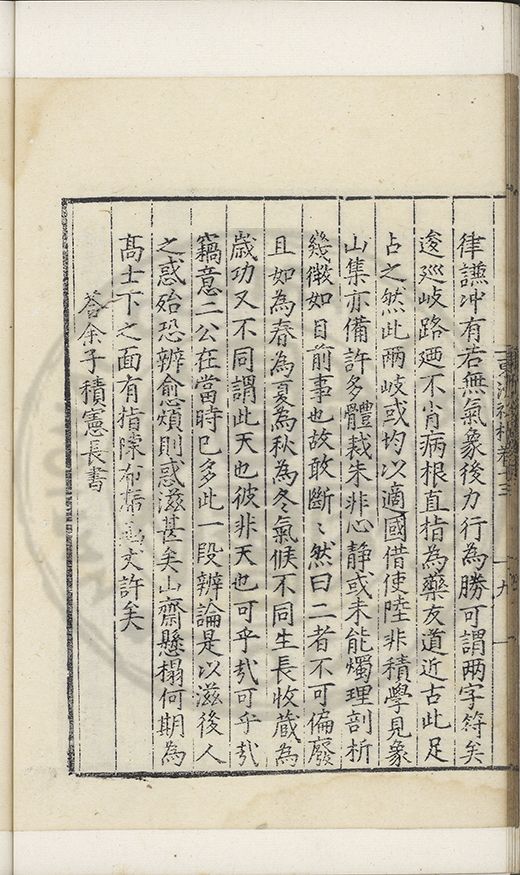 律讌冲有若無氣象後力行為勝可謂兩字符矣
逡廵岐路廼不肖病根直指為藥友道近古此足
占之然此兩岐或均以適國借使陸非積學見象
山集亦備許多體裁朱非心静或未能燭理剖析
幾微如目前事也故敢斷〻然曰二者不可偏廢
且如為春為夏為秋為冬氣候不同生長收蔵為
歳功又不同謂此天也彼非天也可乎㢤可乎㢤
竊意二公在當時已多此一段辨論是以滋後人
之惑殆恐辨愈煩則惑滋甚矣山齋懸榻何期為
髙士下之面有指隙布帶文許矣
荅余子積憲長書
卷十三
十九